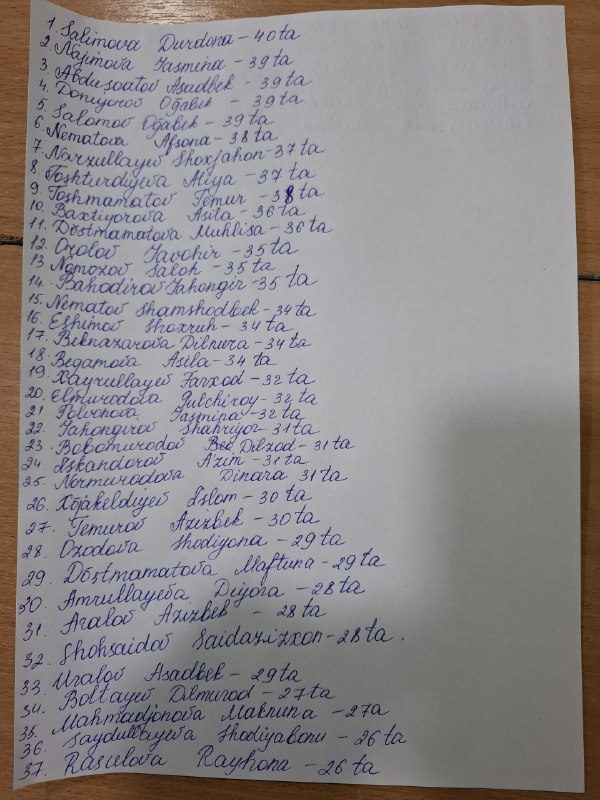 1. Salimova Durdona - 40 ta
2. Najimova Jasmina - 39 ta
3. Abdusoatov Asadbek - 39 ta
4. Doniyorov Og'abek - 39 ta
5. Salomov Og'abek - 39 ta
6. Nematova Afsona - 38 ta
7. Narzullayev Shoxjahon - 37 ta
8. Toshturdiyeva Aliya - 37 ta
9. Toshmamatov Temur - 38 ta
10. Baxtiyorova Asila - 36 ta
11. Do'stmamatova Muhlisa - 36 ta
12. Ozolov Javohir - 35 ta
13. Nomozov Saloh - 35 ta
14. Bahodirov Jahongir - 35 ta
15. Nematov Shamshodbek - 34 ta
16. Eshimov Shoxruh - 34 ta
17. Beknazarova Dilnura - 34 ta
18. Begamova Asila - 34 ta
19. Xayrullayev Farxod - 32 ta
20. Elmurodova Gulchiroy - 32 ta
21. Polvonova Jasmina - 32 ta
22. Jahongirov Shahriyor - 31 ta
23. Bobomurodov Dilzod - 31 ta
24. Iskandarov Azim - 31 ta
25. Normurodova Dinara 31 ta
26. Xo'jakeldiyev Islom - 30 ta
27. Temurov Azizbek - 30 ta
28. Ozodova Shodiyona - 29 ta
29. Do'stmamatova Maftuna - 29 ta
30. Amrullayeva Diyora - 28 ta
31. Aralov Azizbek - 28 ta
32. Shohsaidov Saidazizxon - 28 ta.
33. Uralov Asadbek - 29 ta
34. Boltayev Dilmurod - 27 ta
35. Mahmadjonova Maknuna - 27a
36. Saydullayeva Shodiyabonu - 26 ta
37. Rasulova Rayhona - 26 ta